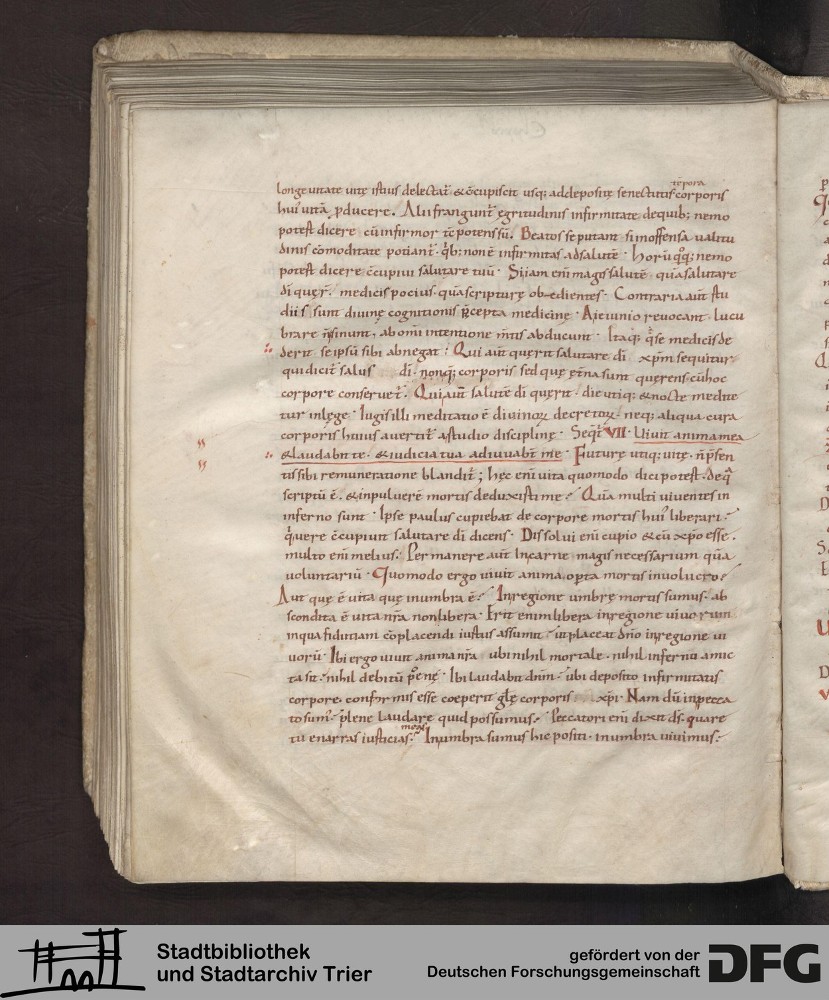 tēpora
longe uitate uitę istius delectat᷑ &c̄cupiscit usq; addepositę senectutis corporis
hui᾽ uitā ꝓducere. Alii frangunt᷑ egritudinis infirmitate dequib; nemo
potest dicere cū infirmor tc̄ potens sū. Beatos se putant si inoffensa ualitu
dinis cōmoditate potiant᷑. qͥb; non ē infirmitas ad salutē. horū qͦq; nemo
potest dicere c̄cupiui salutare tuū. Si iam eni magis salutē quā salutare
di quęr̄. medicis pocius quā scripturę obędientes. Contraria aūt stu
dii s sunt diuinę cognitionis p̄cepta medicinę. A ieiunio reuocant. lucu
brare n̄ sinunt, ab omi intentione m̄tis abducunt. Itaq; qͥ se medicis de
derit se ipsū sibi abnegat: Qui aūt quęrit salutare di xpm̄ sequitur
qui dicit salus di. nonq; corporis sed quę ęt̄na sunt querens. cū hoc
corpore conseruet᷑. Qui aūt salutē di quęrit. die utiq; & nocte medite
tur in lege. Iugis illi meditatio ē diuinoꝝ decretoꝝ. neq; aliqua cura
corporis huius auertit᷑ a studio disciplinę. Seqt᷑ VII. Uiuit anima mea
& laudabit te. & iudicia tua adiuuabt̄ me. Futurę utiq; uitę. n̄ p̄sen
tis sibi remuneratione blandit᷑; hęc eni uita quomodo dici potest. de q
scriptū ē. & in puluerē mortis deduxisti me? Quā multi uiuentes in
inferno sunt. Ipse paulus cupiebat de corpore mortis hui᾽ liberari.
qͣuere c̄cupiuit salutare di dicens. Dissolui eni cupio & cū xpo esse.
multo eni melius. Permanere aūt In carne magis necessarium quā
uoluntariū. Quomodo ergo uiuit anima. opta mortis inuolucro?
Aut quę ē uita quę in umbra ē? In regione umbrę mortis sumus. ab
scondita ē uita nr̄a non libera. Erit enim libera in regione uiuorum
in qua fiduciam cōplacendi iustus assumit. ut placeat dn̄o in regione ui
uorū. Ibi ergo uiuit anima nr̄a ubi nihil mortale. nihil infernū amic
ta sit. nihil debitū pęnę. Ibi laudabit dnm. ubi deposito infirmitatis
corpore. conformis esse coeperit glę corporis xpi. Nam dū in pecca
to sum᾽. plene laudare quid possumus? Peccatori eni dixit ds. quare
meas
tu enarras iusticias? In umbra sumus hic positi. in umbra uiuimus.
Stadtbibliothek
und Stadtarchiv Trier
gefördert von der
Deutschen Forschungsgemeinschaft
DFG